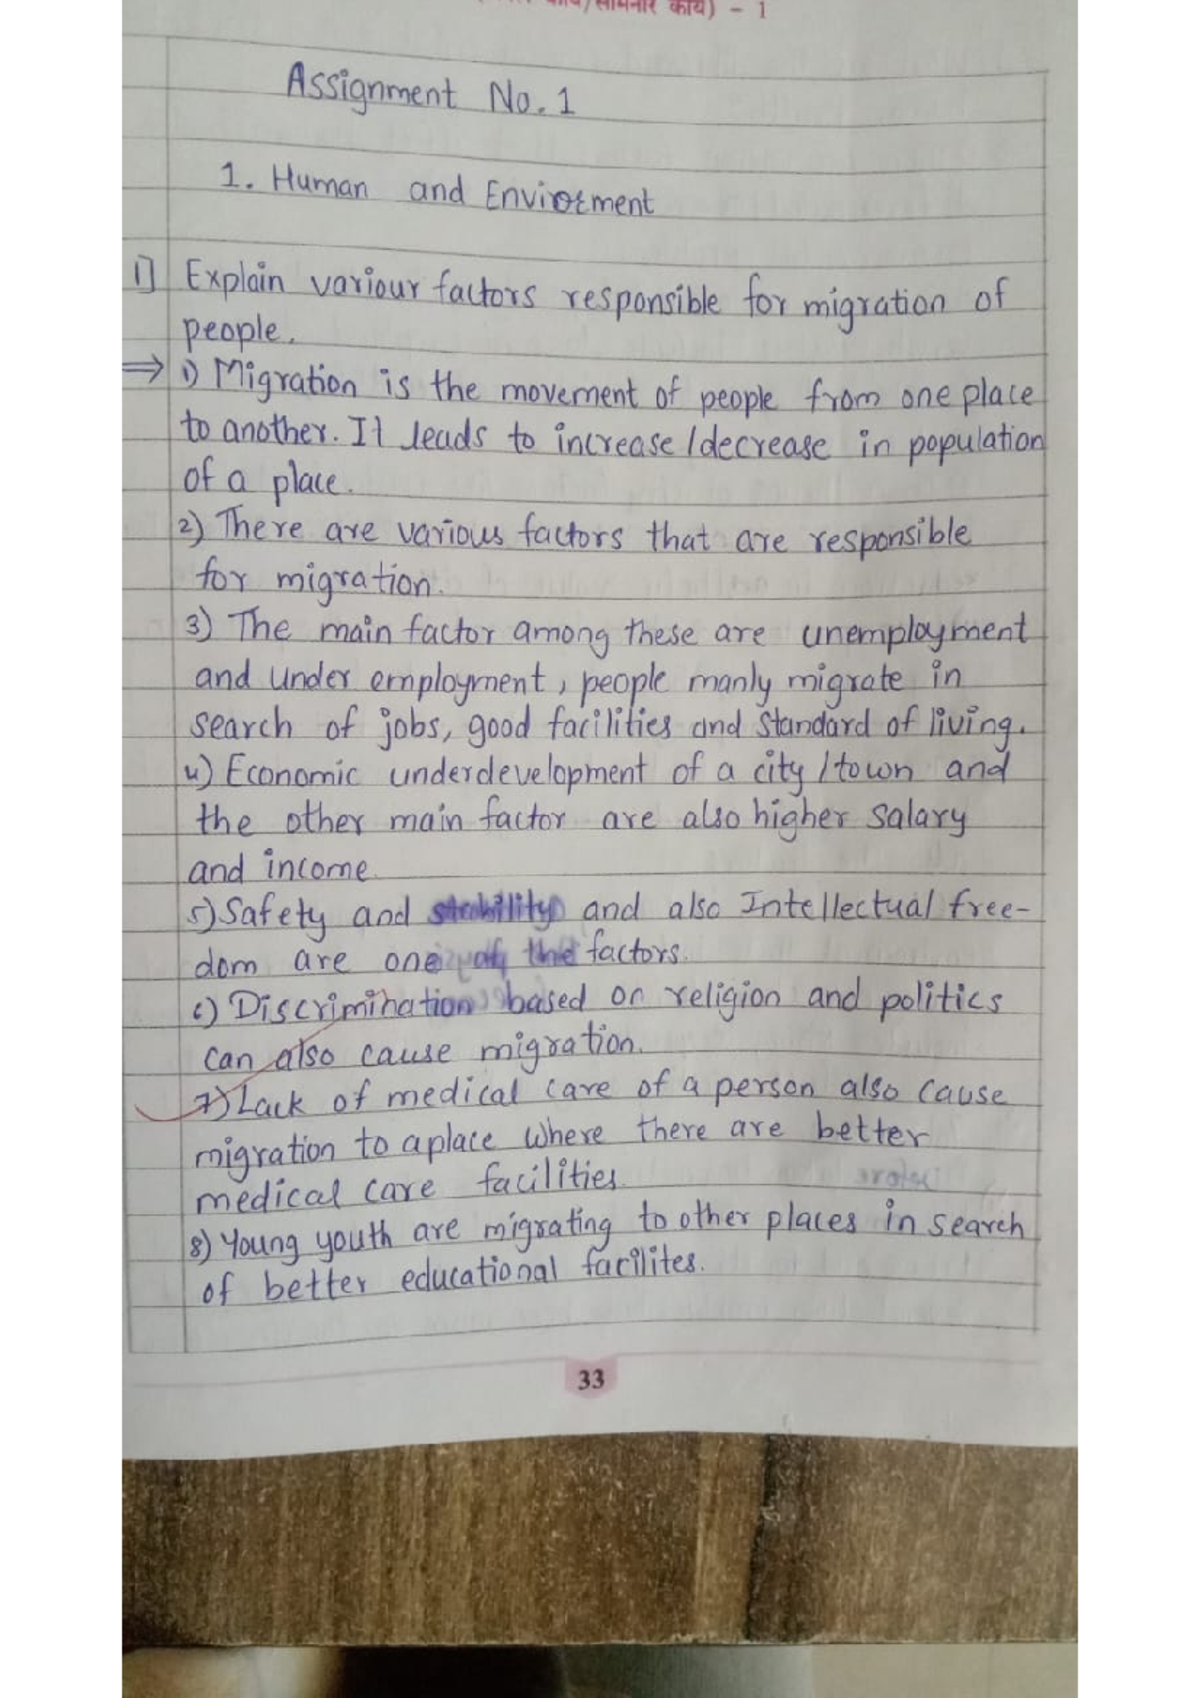 कार्य) - 1
Assignment No. 1
1. Human and Enviorment
1] Explain variour factors responsible for migration of
people.
⇒ 1) Migration is the movement of people from one place
to another. It leads to increase/decrease in population
of a place.
2) There are various factors that are responsible
for migration.
3) The main factor among these are unemployment
and under employment, people manly migrate in
search of jobs, good facilities and standard of living.
4) Economic underdevelopment of a city/town and
the other main factor are also higher salary
and income.
5) Safety and stability and also Intellectual free-
dom are one of the factors.
6) Discrimination based on religion and politics
can also cause migration.
7) Lack of medical care of a person also cause
migration to a place where there are better
medical care facilities.
8) Young youth are migrating to other places in search
of better educational facilites.
33